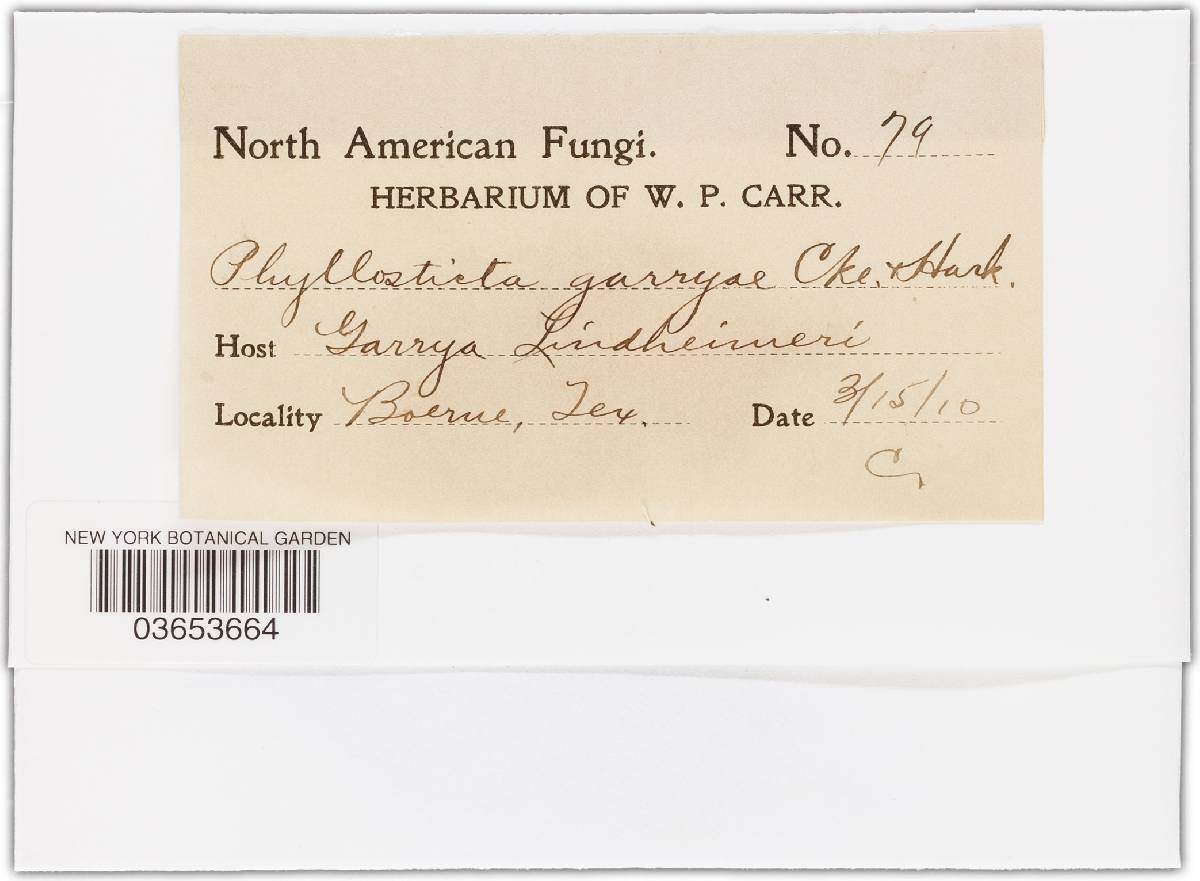 North American Fungi. No. 79
HERBARIUM OF W. P. CARR.
Phyllosticta garryae Cke. & Hark.
Host Garrya Lindheimeri
Locality Boerne, Tex. Date 3/15/10
C,
NEW YORK BOTANICAL GARDEN
03653664